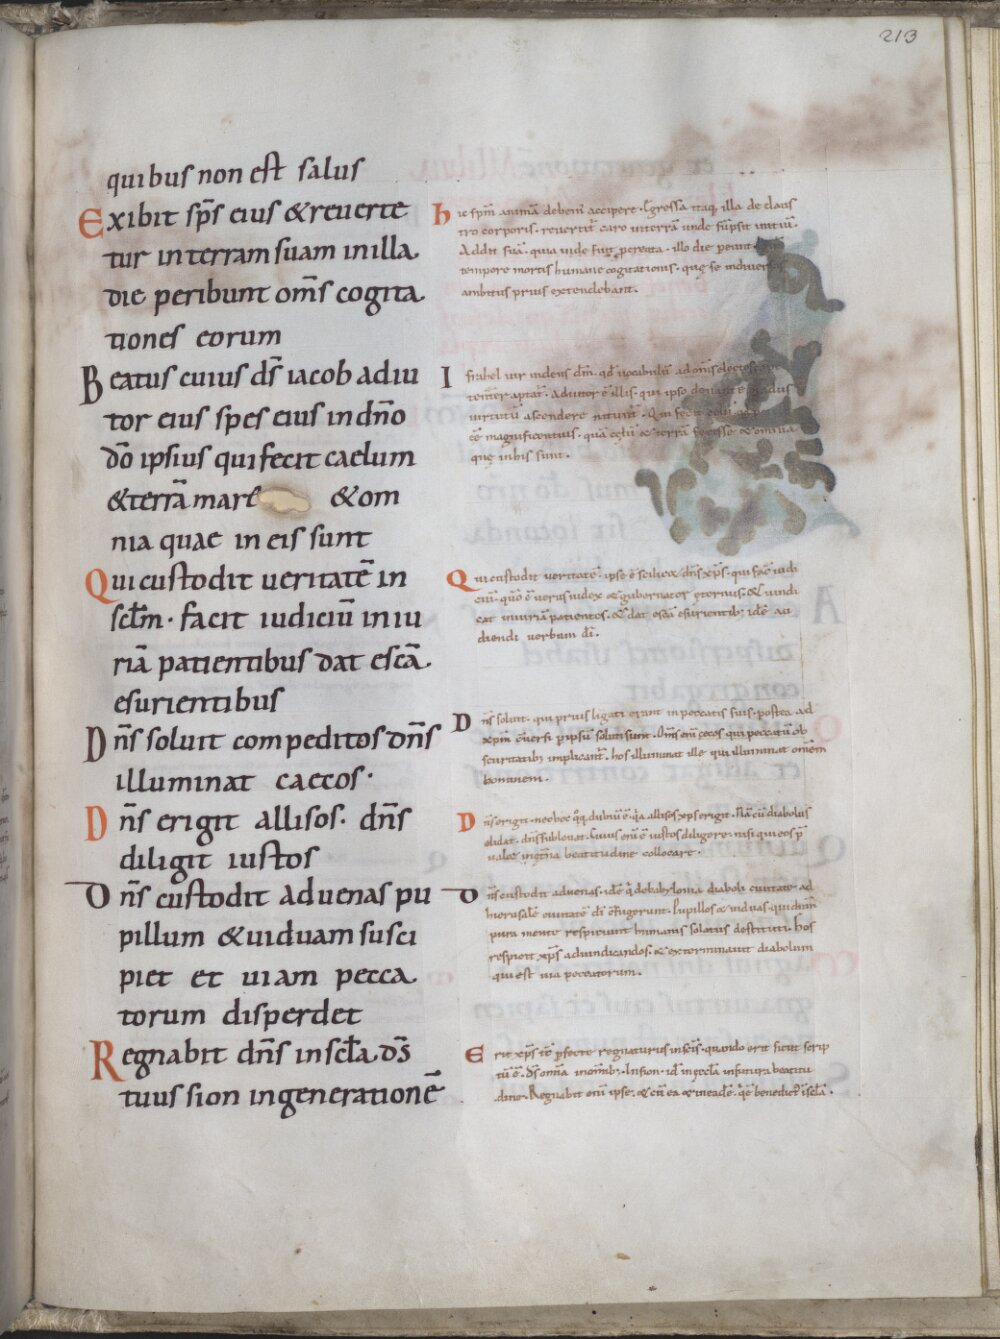 213
quibus non est salus
Exibit sp̄s eius &reuerte
tur interram suam inilla
die peribunt om̄s cogita
tiones eorum
Beatus cuius ds̄ iacob adiu
tor eius spes eius indn̄o
dō ipsius qui fecit caelum
&terrā mare &om
nia quae in eis sunt
Qui custodit ueritatē in
scl̄m· facit iudiciū iniu
riā patientibus dat escā
esurientibus
Dn̄s soluit compeditos dn̄s
illuminat caecos·
Dn̄s erigit allisos· dn̄s
diligit iustos
Dn̄s custodit aduenas pu
pillum &uiduam susci
piet et uiam pecca
torum disperdet
Regnabit dn̄s inscl̄a ds̄
tuus sion ingenerationē
hic spm̄ animā debem̄ accipere· Egressa itaq; illa de claus
tro corporis· reuertit̄ caro interrā unde sūpsit initiū·
Addit suā· quia inde fuit perempta· illo die
tempore mortis humane cogitationis· quę se indiuersos
ambitus prius extendebant·
Israhel uir uidens dm̄· qd̄ uocabulū ad om̄s electos
aptat̄· Adiutor ē illis· qui ipso donante gradus
uirtutū ascendere nitunt̄· Qui fecit
ēe magnificentius· quā cęlū &terrā fecisse &omnia
quę inhis sunt·
Qui custodit ueritatē· ipse ē scilicet dn̄s xp̄s· qui facit iudi
ciū· quō ē uerus iudex &gubernator ęternus· & uindi
cat iniuriā patientes· &dat escā esurientib; idē au
diendi uerbum dī·
Dn̄s soluit· qui prius ligati erant inpeccatis suis· postea ad
xpm̄ cōuersi p ipsū soluti sunt· Dn̄s enī cecos qui peccatū ob
scuritatib; implicant̄· hos illuminat ille qui illuminat omnem
hominem·
Dn̄s erigit· neo hoc q̄q; dubiū ē· q̄a allisos xp̄s erigit· Nā cū diabolus
elidat· dn̄s subleuat· Cuius enī ē iustos diligere· nisi qui eos p̄
ualet inęt̄na beatitudine collocare·
Dn̄s custodit aduenas· idē q̄ debabylonia diaboli ciuitate ad
hierusalē ciuitatē dī cōfugerunt· Pupillos & uiduas· qui dn̄m
pura mente respiciunt humanis solatiis destituti· hos
respicit xp̄s adiudicandos· &exterminauit diabolum
qui est uia peccatorum·
Erit xp̄s rex pfecte regnaturus inscis̄· quando erit sicut scrip
tū ē· ds̄ omnia inomib;· Insion· id ē inęcl̄a infutura beatitu
dine· Regnabit enī ipse· &cū ea &ineadē· q̄ ē benedict̄ inscl̄a·